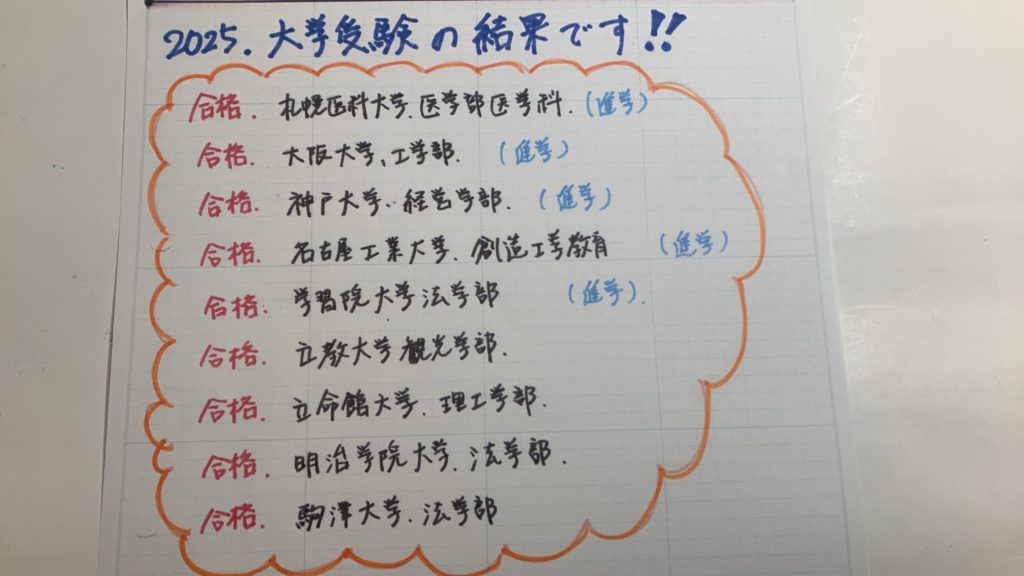 2025. 大学受験の結果です!!
合格. 札幌医科大学. 医学部医学科. (進学)
合格. 大阪大学、工学部. (進学)
合格. 神戸大学.. 経営学部. (進学)
合格. 名古屋工業大学. 創造工学教育 (進学)
合格. 学習院大学法学部 (進学).
合格. 立教大学観光学部.
合格. 立命館大学. 理工学部.
合格. 明治学院大学. 法学部.
合格. 駒澤大学. 法学部